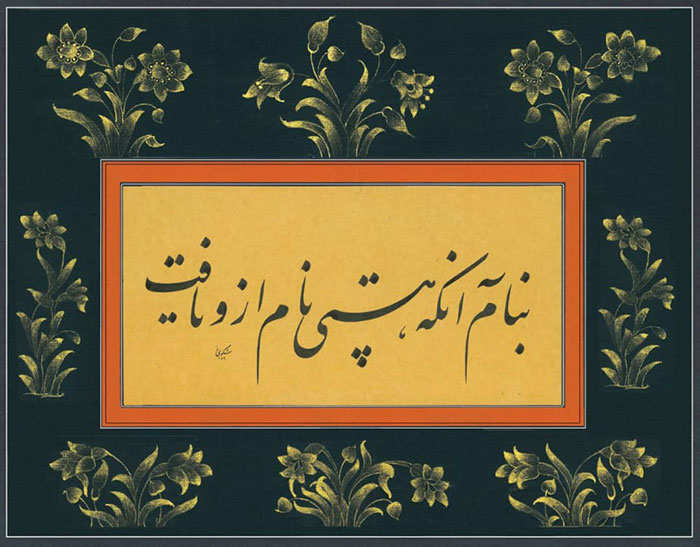 بنام آنکه هستی نام ازو یافت